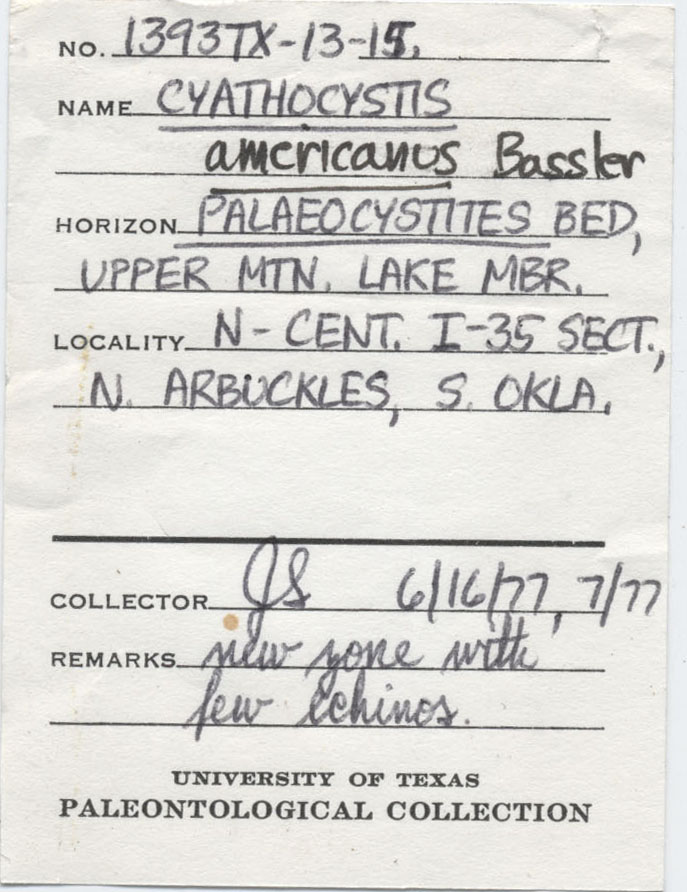 NO. 1393TX-13-15.
NAME CYATHOCYSTIS
americanus Bassler
HORIZON PALAEOCYSTITES BED,
UPPER MTN. LAKE MBR.
LOCALITY N-CENT. I-35 SECT.,
N. ARBUCKLES, S. OKLA.
COLLECTOR JS 6/16/77, 7/77
REMARKS new zone with
few echinos.
UNIVERSITY OF TEXAS
PALEONTOLOGICAL COLLECTION